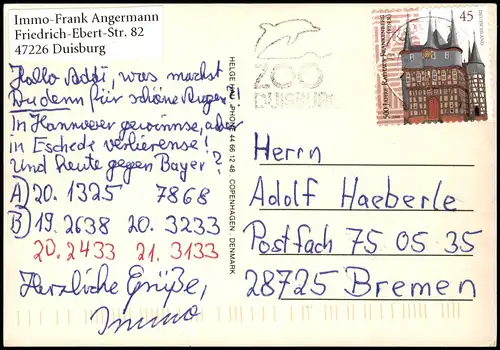 Immo-Frank Angermann
Friedrich-Ebert-Str. 82
47226 Duisburg
Hallo Addi, was machst
Du denn für schöne Augen?!
In Hannover gewinnse, aber
in Eschede verlierense!
Und heute gegen Bayer?
A) 20. 1325 7868
B) 19. 2638 20. 3233
20. 2433 21. 3133
Herzliche Grüße,
Immo
HELGE PHONE 44 66 12 48 . COPENHAGEN . DENMARK
ZOO
DUISBURG
45
DEUTSCHLAND
500 Jahre Rathaus Frankenberg
Herrn
Adolf Haeberle
Postfach 75 05 35
28725 Bremen